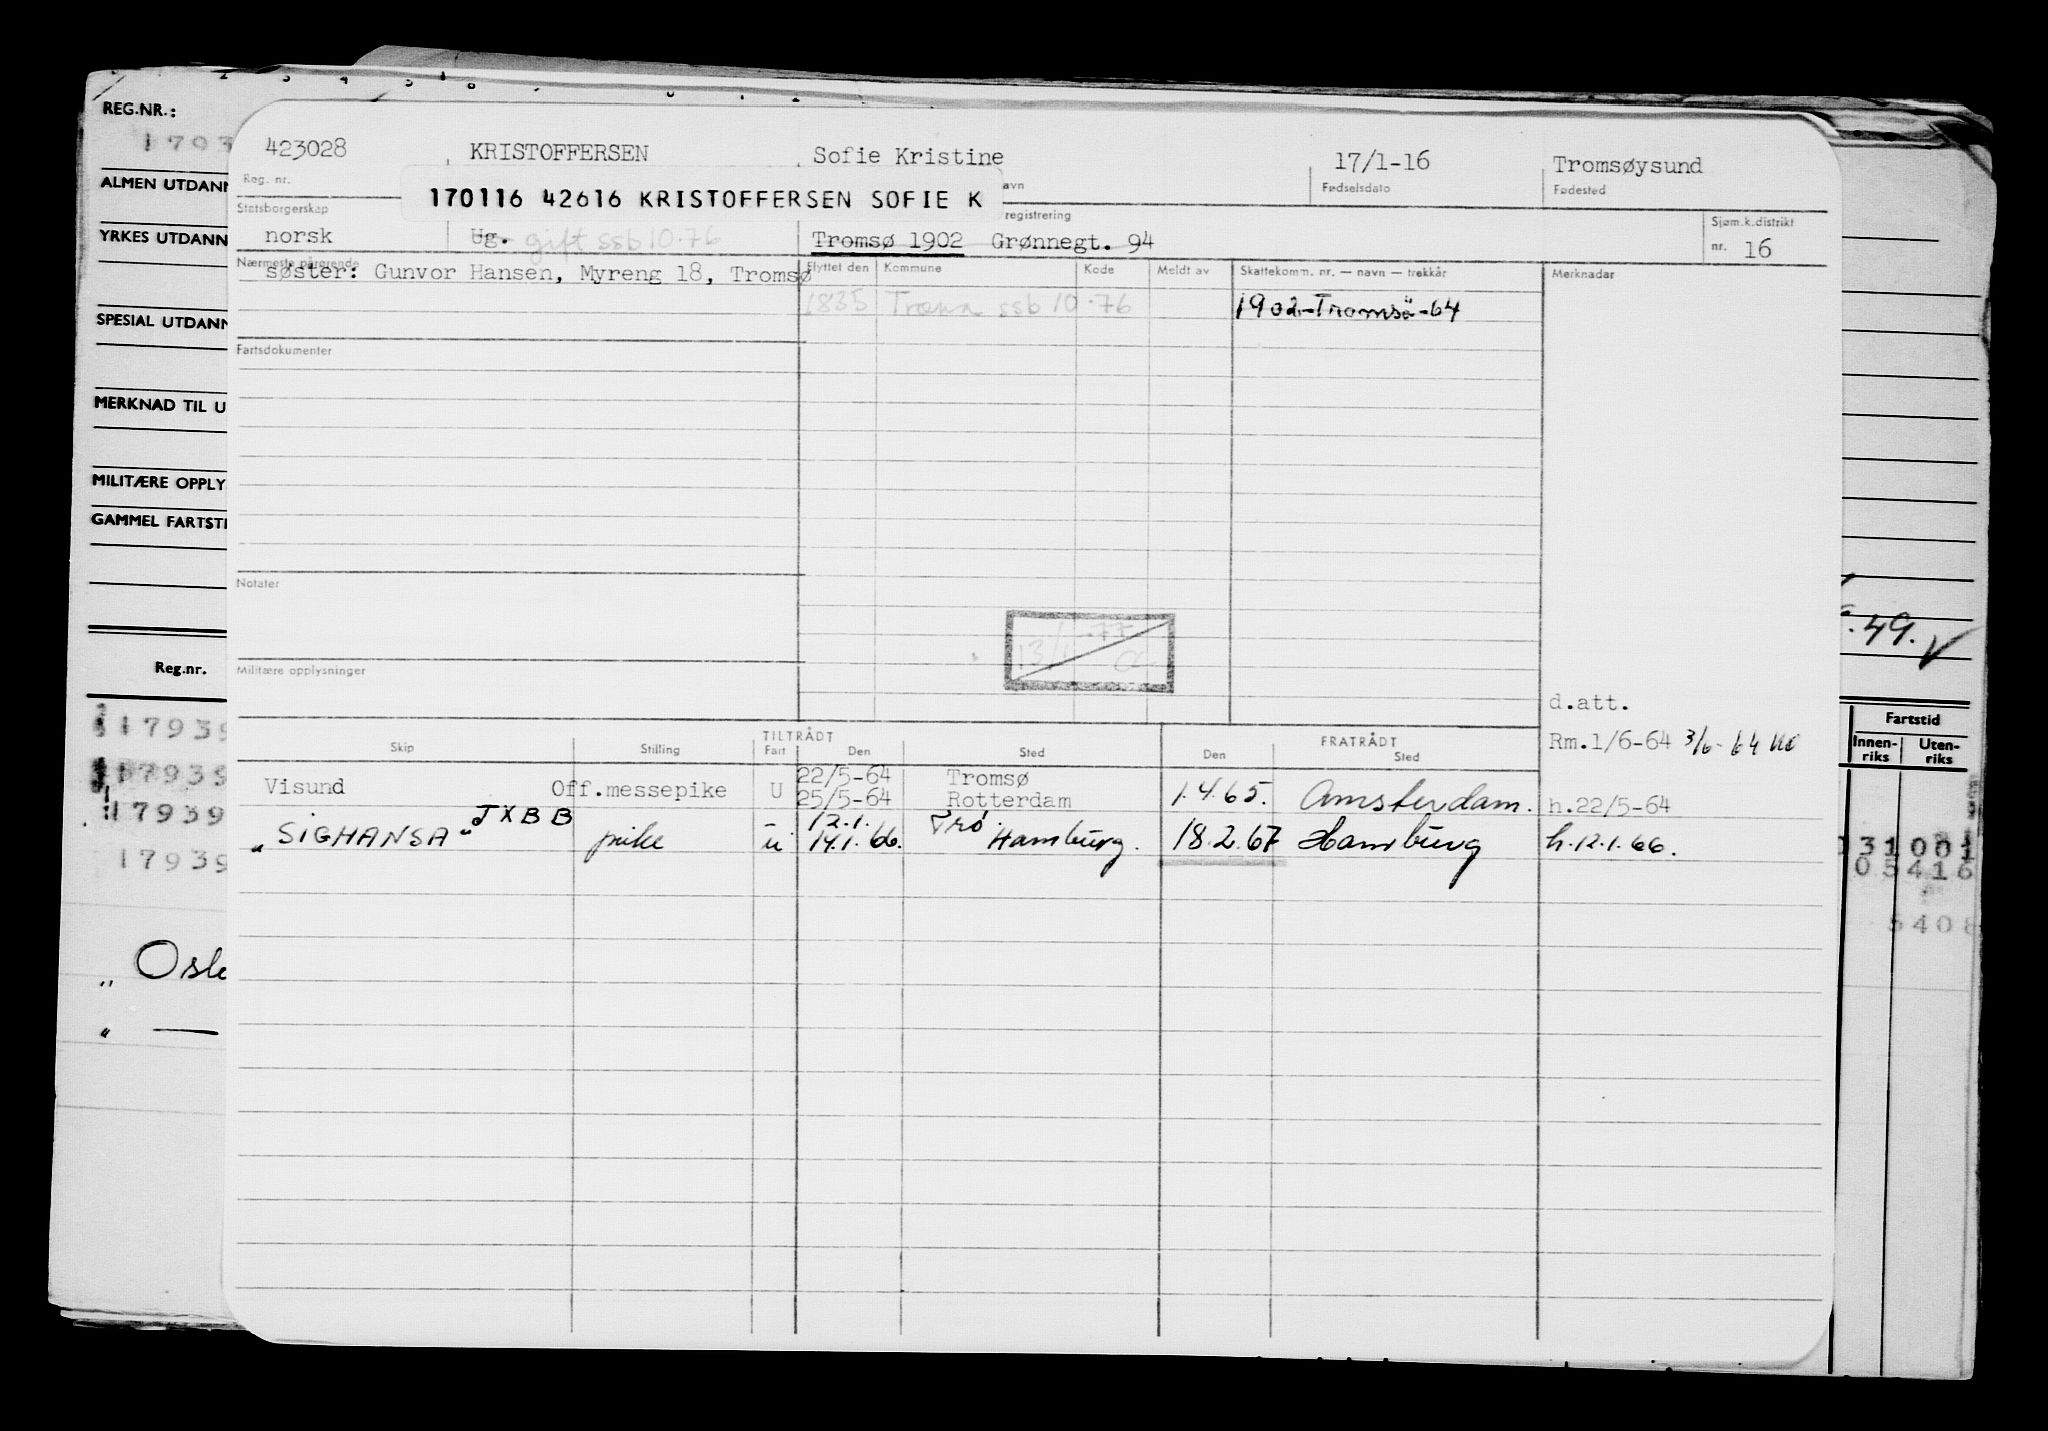 REG.NR.:
1793
ALMEN UTDANN
YRKES UTDANN
SPESIAL UTDANN
MERKNAD TIL U
MILITÆRE OPPLY
GAMMEL FARTSTI
Reg.nr.
17939
17939
17939
17939
„ Osl
„ —
423028 KRISTOFFERSEN Sofie Kristine 17/1-16 Tromsøysund
Reg. nr. avn Fødselsdato Fødested
170116 42616 KRISTOFFERSEN SOFIE K
Statsborgerskap registrering Sjøm.k.distrikt
norsk Ug. gift ssb 10.76 Tromsø 1902 Grønnegt. 94 nr. 16
Nærmeste pårørende Flyttet den Kommune Kode Meldt av Skattekomm. nr. — navn — trekkår Merknader
søster: Gunvor Hansen, Myreng 18, Tromsø
1835 Træna ssb 10.76 1902-Tromsö-64
Fartsdokumenter
Notater
13/1 -77
Militære opplysninger
d.att.
Rm.1/6-64 3/6-64
TILTRÅDT FRATRÅDT
Skip Stilling Fart Den Sted Den Sted
Visund Off.messepike U 22/5-64 Tromsø
25/5-64 Rotterdam 1.4.65. Amsterdam. h.22/5-64
„SIGHANSA" JXBB pike - 12.1. Trø.
u 14.1.66. Hamburg. 18.2.67 Hamburg h.12.1.66.
.49.
Fartstid
Innen-riks Uten-riks
31001
05416
5408